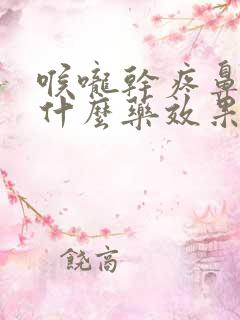 喉嚨幹疼鼻
什麼藥效果
饒高